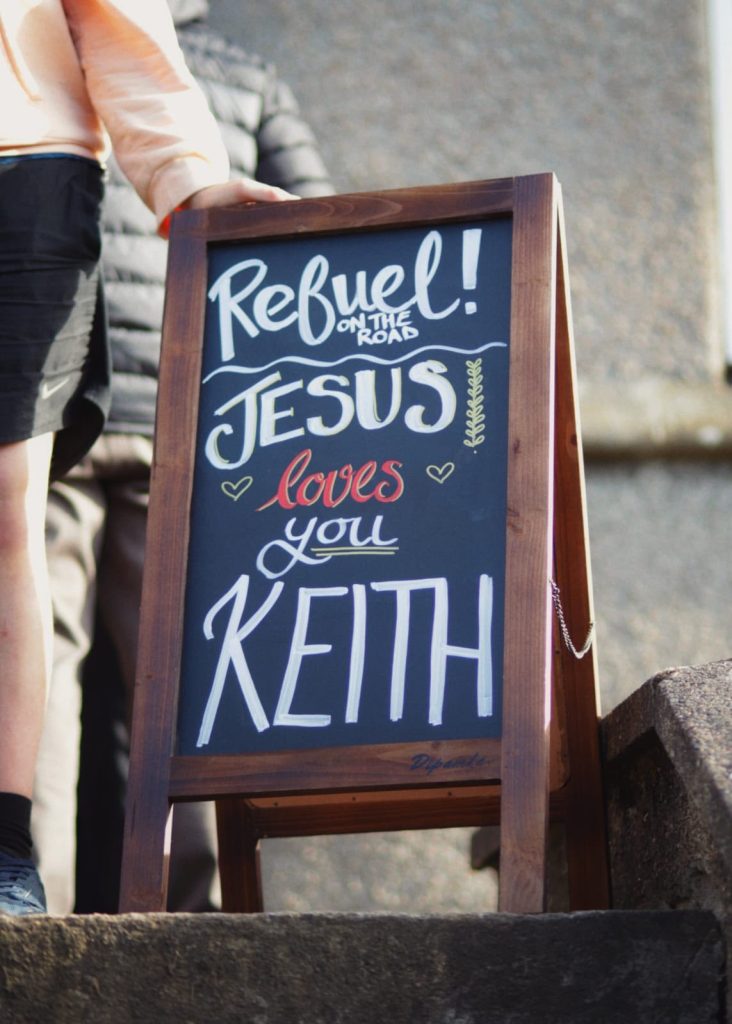 Refuel!
ON THE
ROAD
JESUS
loves
you
KEITH